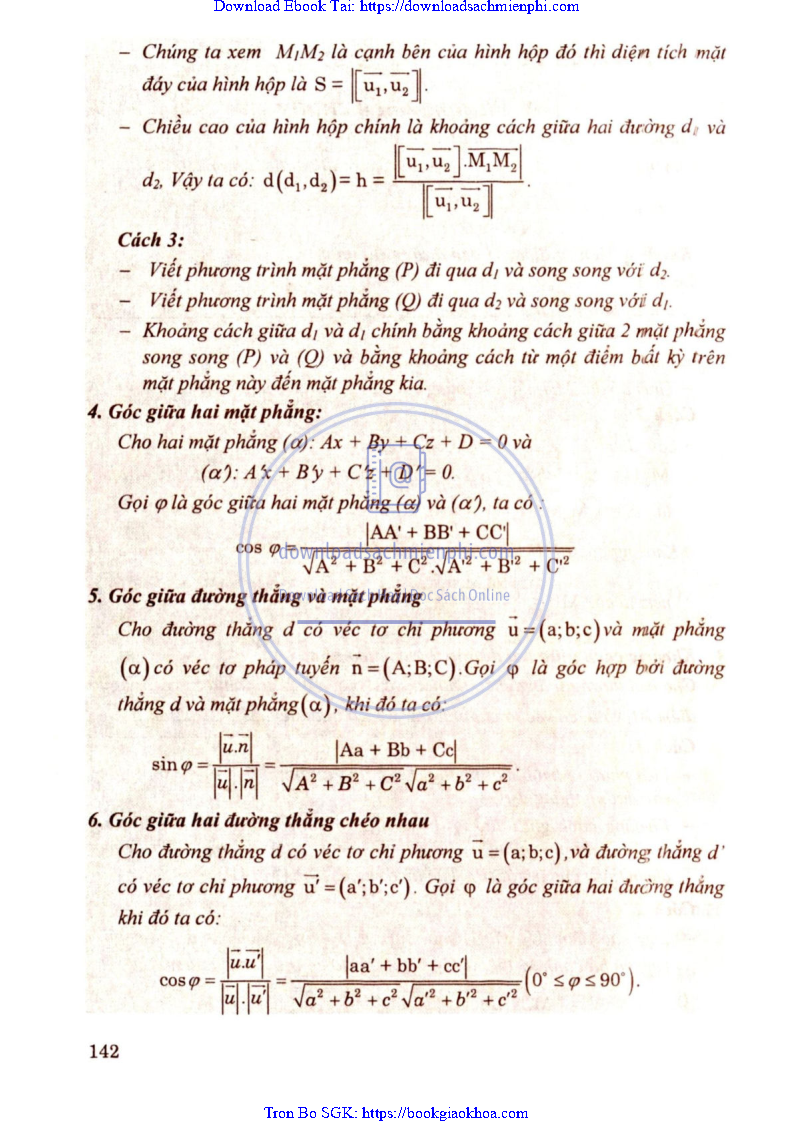 Download Ebook Tai: https://downloadsachmienphi.com
– Chúng ta xem M₁M₂ là cạnh bên của hình hộp đó thì diện tích mặt
đáy của hình hộp là S = |[u₁,u₂]|.
– Chiều cao của hình hộp chính là khoảng cách giữa hai đường d₁ và
d₂. Vậy ta có: d(d₁,d₂) = h = |[u₁,u₂].M₁M₂| / |[u₁,u₂]|.
Cách 3:
– Viết phương trình mặt phẳng (P) đi qua d₁ và song song với d₂.
– Viết phương trình mặt phẳng (Q) đi qua d₂ và song song với d₁.
– Khoảng cách giữa d₁ và d₁ chính bằng khoảng cách giữa 2 mặt phẳng
song song (P) và (Q) và bằng khoảng cách từ một điểm bất kỳ trên
mặt phẳng này đến mặt phẳng kia.
4. Góc giữa hai mặt phẳng:
Cho hai mặt phẳng (α): Ax + By + Cz + D = 0 và
(α'): A'x + B'y + C'z + D' = 0.
Gọi φ là góc giữa hai mặt phẳng (α) và (α'), ta có :
cos φ = |AA' + BB' + CC'| / √A² + B² + C².√A'² + B'² + C'²
downloadsachmienphi.com
Download Sách Hay | Đọc Sách Online
5. Góc giữa đường thẳng và mặt phẳng
Cho đường thẳng d có véc tơ chỉ phương u = (a;b;c) và mặt phẳng
(α) có véc tơ pháp tuyến n = (A;B;C). Gọi φ là góc hợp bởi đường
thẳng d và mặt phẳng (α), khi đó ta có:
sin φ = |u.n| / |u|.|n| = |Aa + Bb + Cc| / √A² + B² + C² √a² + b² + c².
6. Góc giữa hai đường thẳng chéo nhau
Cho đường thẳng d có véc tơ chỉ phương u = (a;b;c), và đường thẳng d'
có véc tơ chỉ phương u' = (a';b';c'). Gọi φ là góc giữa hai đường thẳng
khi đó ta có:
cos φ = |u.u'| / |u|.|u'| = |aa' + bb' + cc'| / √a² + b² + c² √a'² + b'² + c'² (0° ≤ φ ≤ 90°).
142
Tron Bo SGK: https://bookgiaokhoa.com